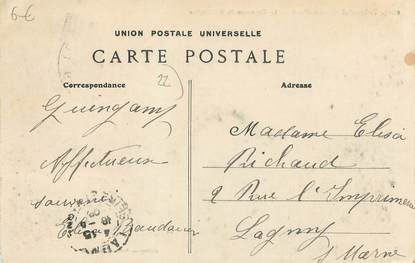 6€
UNION POSTALE UNIVERSELLE
CARTE POSTALE
22
Correspondance
Adresse
Guingamp
Affectueux
souvenir
Madame Elisa
Richaud
2 Rue l'Imprimerie
Lagny
s/ Marne